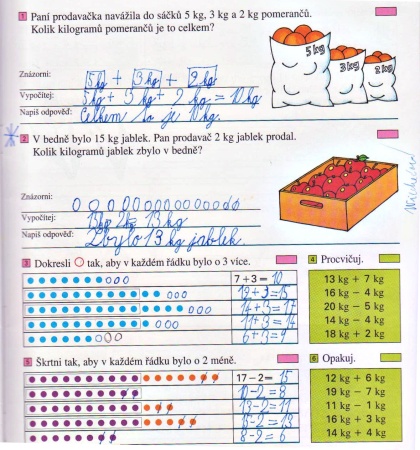 1 Paní prodavačka navážila do sáčků 5 kg, 3 kg a 2 kg pomerančů.
Kolik kilogramů pomerančů je to celkem?
5 kg
3 kg
2 kg
Znázorni: 5 kg + 3 kg + 2 kg
Vypočítej: 5 kg + 3 kg + 2 kg = 10 kg
Napiš odpověď: Celkem to je 10 kg.
2 V bedně bylo 15 kg jablek. Pan prodavač 2 kg jablek prodal.
Kolik kilogramů jablek zbylo v bedně?
Znázorni:
Vypočítej: 15kg 2kg 13 kg
Napiš odpověď: Zbylo 13 kg jablek.
3 Dokresli tak, aby v každém řádku bylo o 3 více.
7 + 3 = 10
12 + 3 = 15
14 + 3 = 17
11 + 3 = 14
6 + 3 = 9
4 Procvičuj.
13 kg + 7 kg
16 kg − 4 kg
20 kg − 5 kg
14 kg − 4 kg
18 kg + 2 kg
5 Škrtni tak, aby v každém řádku bylo o 2 méně.
17 − 2 = 15
10 − 2 = 8
13 − 2 = 11
15 − 2 = 13
8 − 2 = 6
6 Opakuj.
12 kg + 6 kg
19 kg − 7 kg
11 kg − 1 kg
16 kg + 3 kg
14 kg + 4 kg